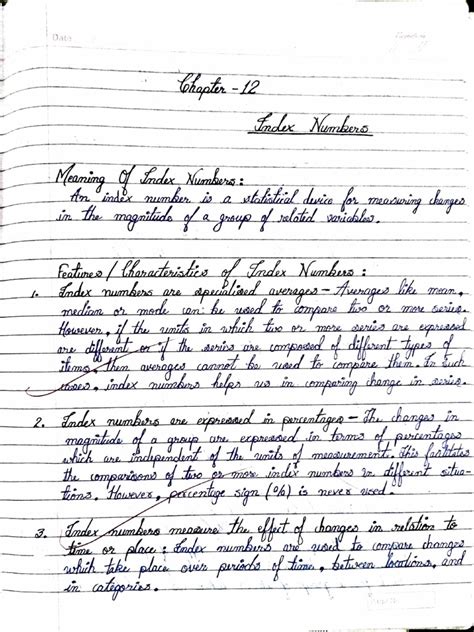 Date
Chapter - 12
Index Numbers
Meaning Of Index Numbers :
An index number is a statistical device for measuring changes
in the magnitude of a group of related variables.
Features / Characteristics of Index Numbers :
1. Index numbers are specialised averages - Averages like mean,
median or mode can be used to compare two or more series.
However, if the units in which two or more series are expressed
are different or if the series are composed of different types of
items, then averages cannot be used to compare them. In such
cases, index numbers helps us in comparing change in series.
2. Index numbers are expressed in percentages - The changes in
magnitude of a group are expressed in terms of percentages
which are independent of the units of measurement. This facilitates
the comparisons of two or more index numbers in different situa-
tions. However, percentage sign (%) is never used.
3. Index numbers measure the effect of changes in relation to
time or place : Index numbers are used to compare changes
which take place over periods of time, between locations, and
in categories.